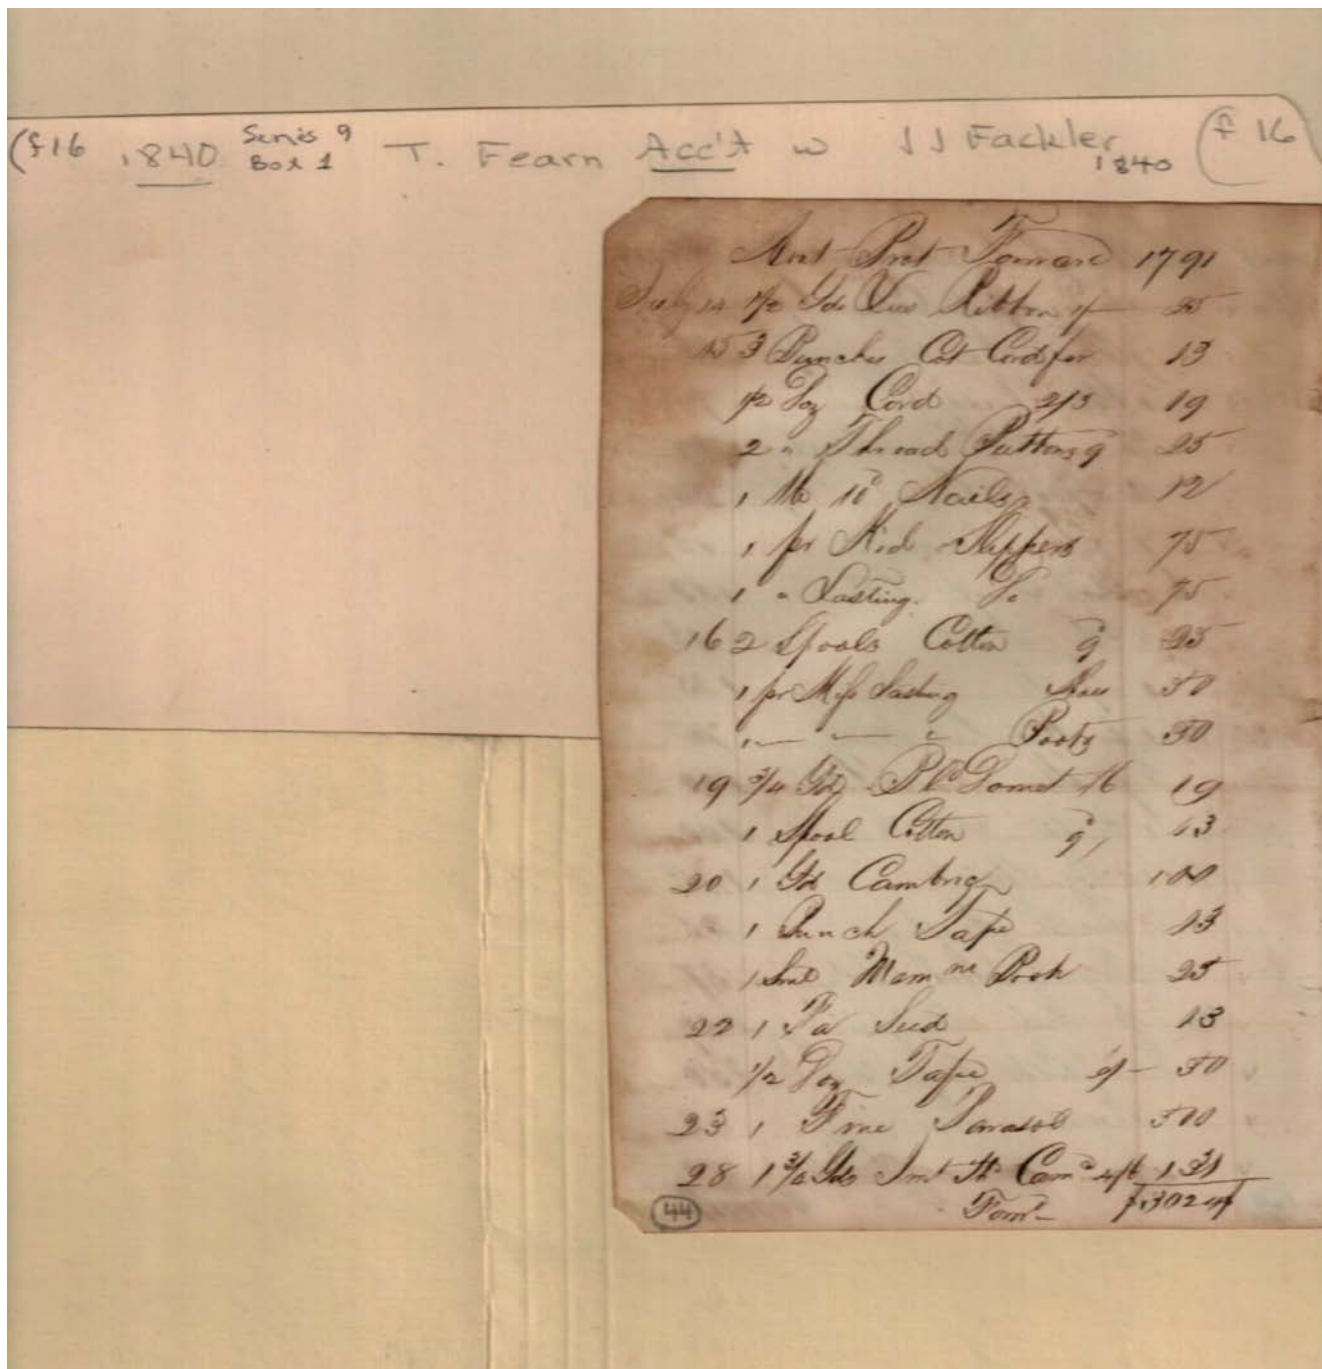 (f16 1840 Series 9 Box 1 T. Fearn Acc't w J J Fackler 1840 (f 16
Amt Brot Forward 1791
July 14 1/2 Yds Ribbon 1/- 25
15 3 Bunches Cot Cord for 13
1/2 Doz Cord 2/3 19
2 " Thread Buttons 9 25
1 10d Nails 12
1 pr Kid Slippers 75
1 " Lasting Do 75
16 2 Spools Cotton 9d 25
1 pr Miss Lasting Shoes 50
1 — — " Boots 50
19 3/4 Yd Domet 1/6 19
1 Spool Cotton 9d 13
20 1 Yd Cambric 100
1 Bunch Tape 13
1 Mem Book 25
22 1 Pa Seed 13
1/2 Doz Tape 6/- 50
23 1 Fine Parasol 500
28 1 3/4 Yds Cam 4/6 131
Forwd $3024
44